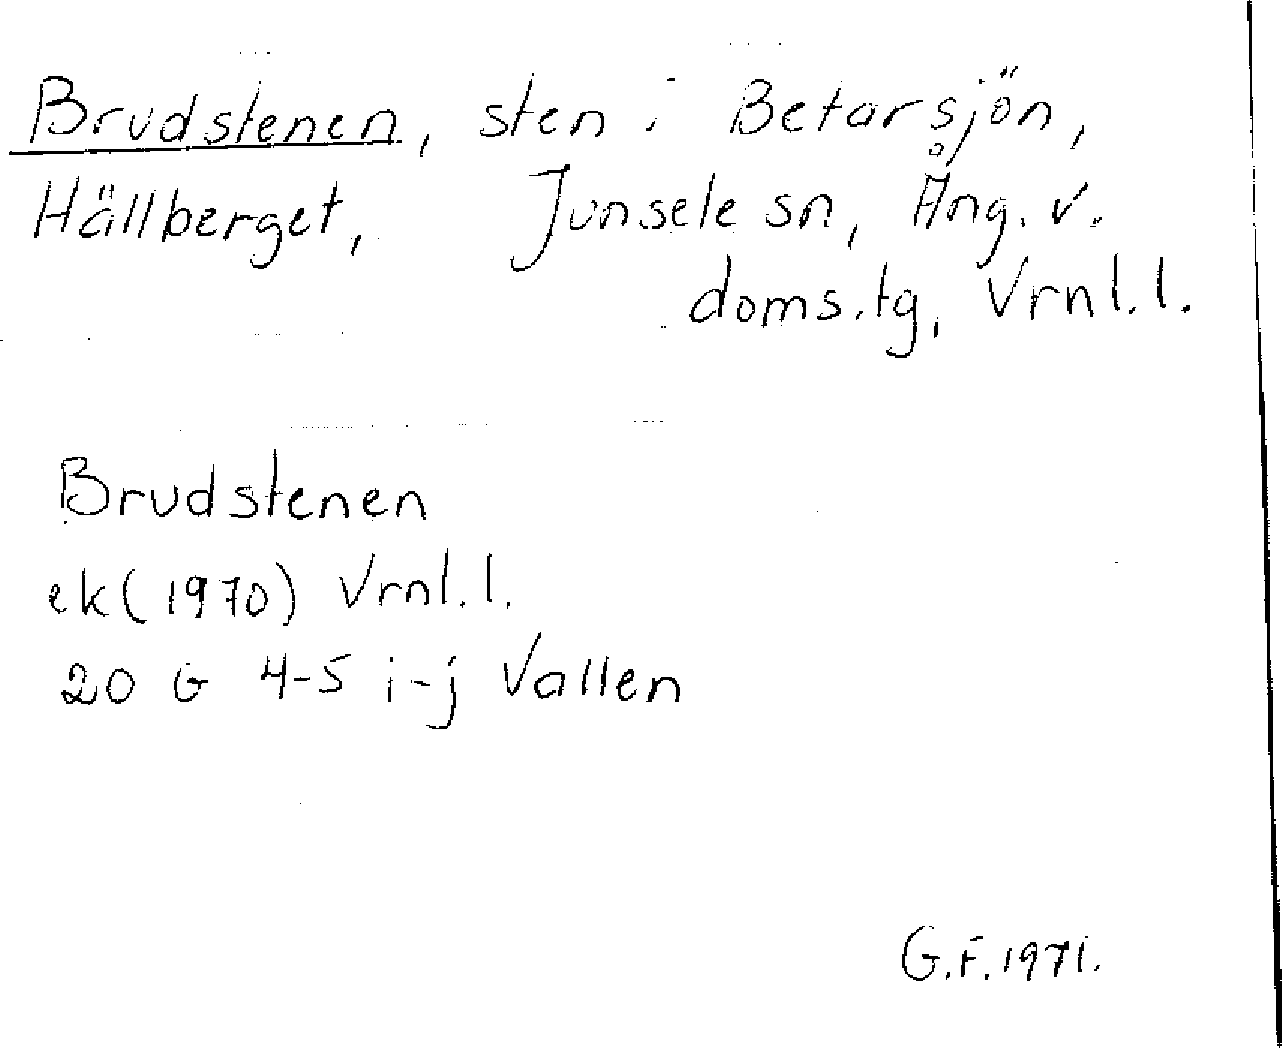 Brudstenen, sten i Betarsjön,
Hällberget, Junsele sn, Ång. v.
doms.tg, Vrnl.l.
Brudstenen
ek(1970) Vrnl.l.
20 G 4-5 i-j Vallen
G.F.1971.